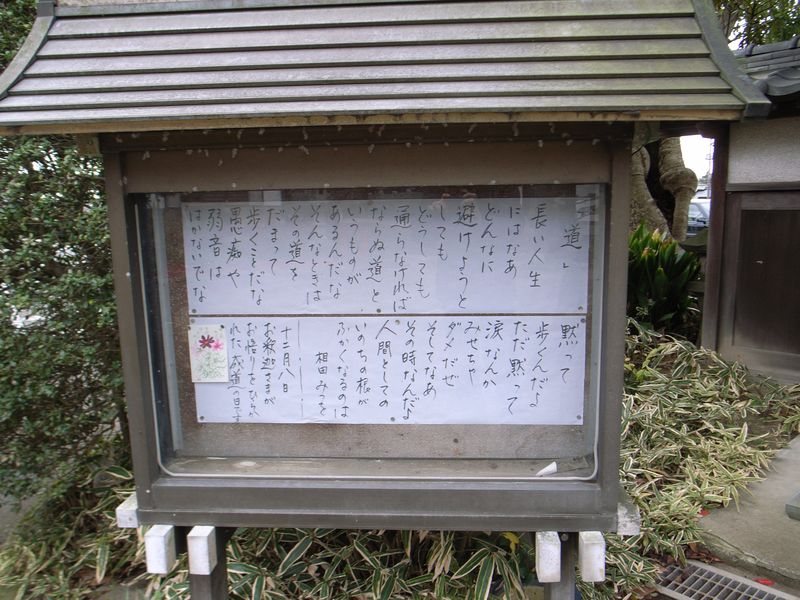 道」
長い人生
にはなあ
どんなに
避けようと
しても
どうしても
通らなければ
ならぬ道と
いうものが
あるんだな
そんなときは
その道を
だまって
歩くことだな
愚痴や
弱音は
はかないでな
黙って
歩くんだよ
ただ黙って
涙なんか
みせちゃ
ダメだぜ
そしてなあ
その時なんだよ
人間としての
いのちの根が
ふかくなるのは
相田みつを
十二月八日
お釈迦さまが
お悟りをひらか
れた成道の日です